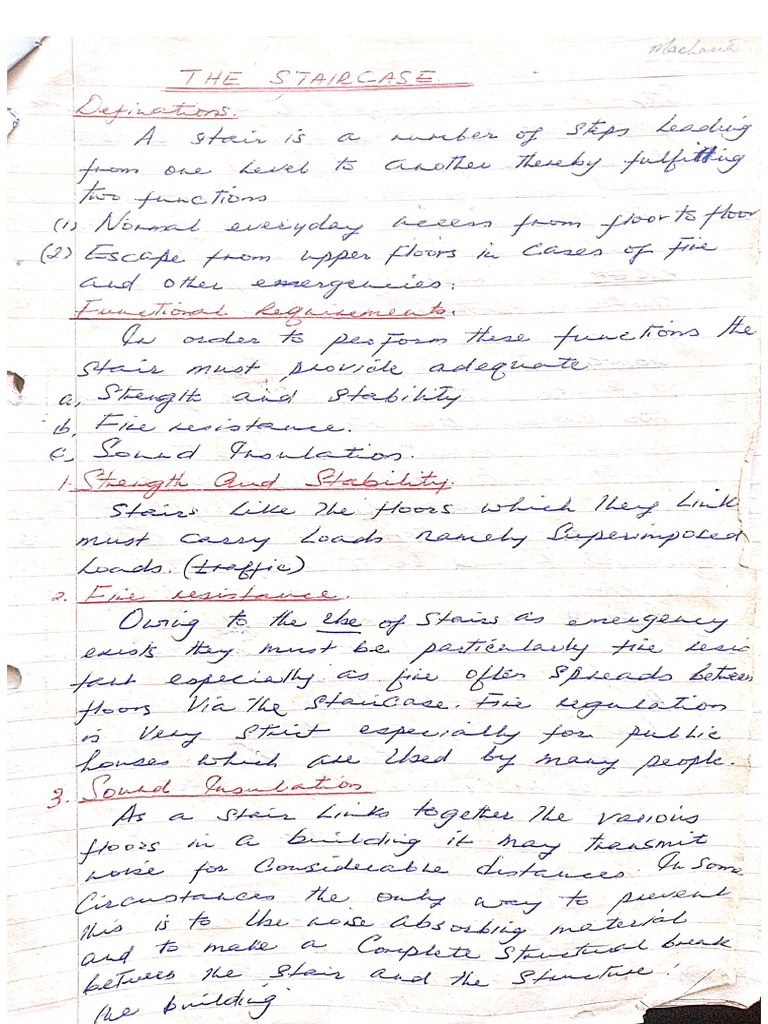 Macharia
THE STAIRCASE
Definations.
A stair is a number of steps leading
from one level to another thereby fulfitting
two functions
(1) Normal everyday access from floor to floor
(2) Escape from upper floors in cases of fire
and other emergencies.
Functional Requirements.
In order to perform these functions the
stair must provide adequate
a, Strength and stability
b, Fire resistance.
c, Sound Insulation.
1. Strength and Stability.
Stairs like the floors which they link
must carry loads namely Superimposed
loads. (traffic)
2. Fire resistance.
Owing to the use of stairs as emergency
exists they must be particularly fire resis
tant especially as fire often spreads between
floors via the staircase. Fire regulation
is very strict especially for public
houses which are used by many people.
3. Sound Insulation
As a stair links together the various
floors in a building it may transmit
noise for considerable distances. In some
circustances the only way to prevent
this is to use noise absorbing material
and to make a complete structural break
between the stair and the structure.
the building